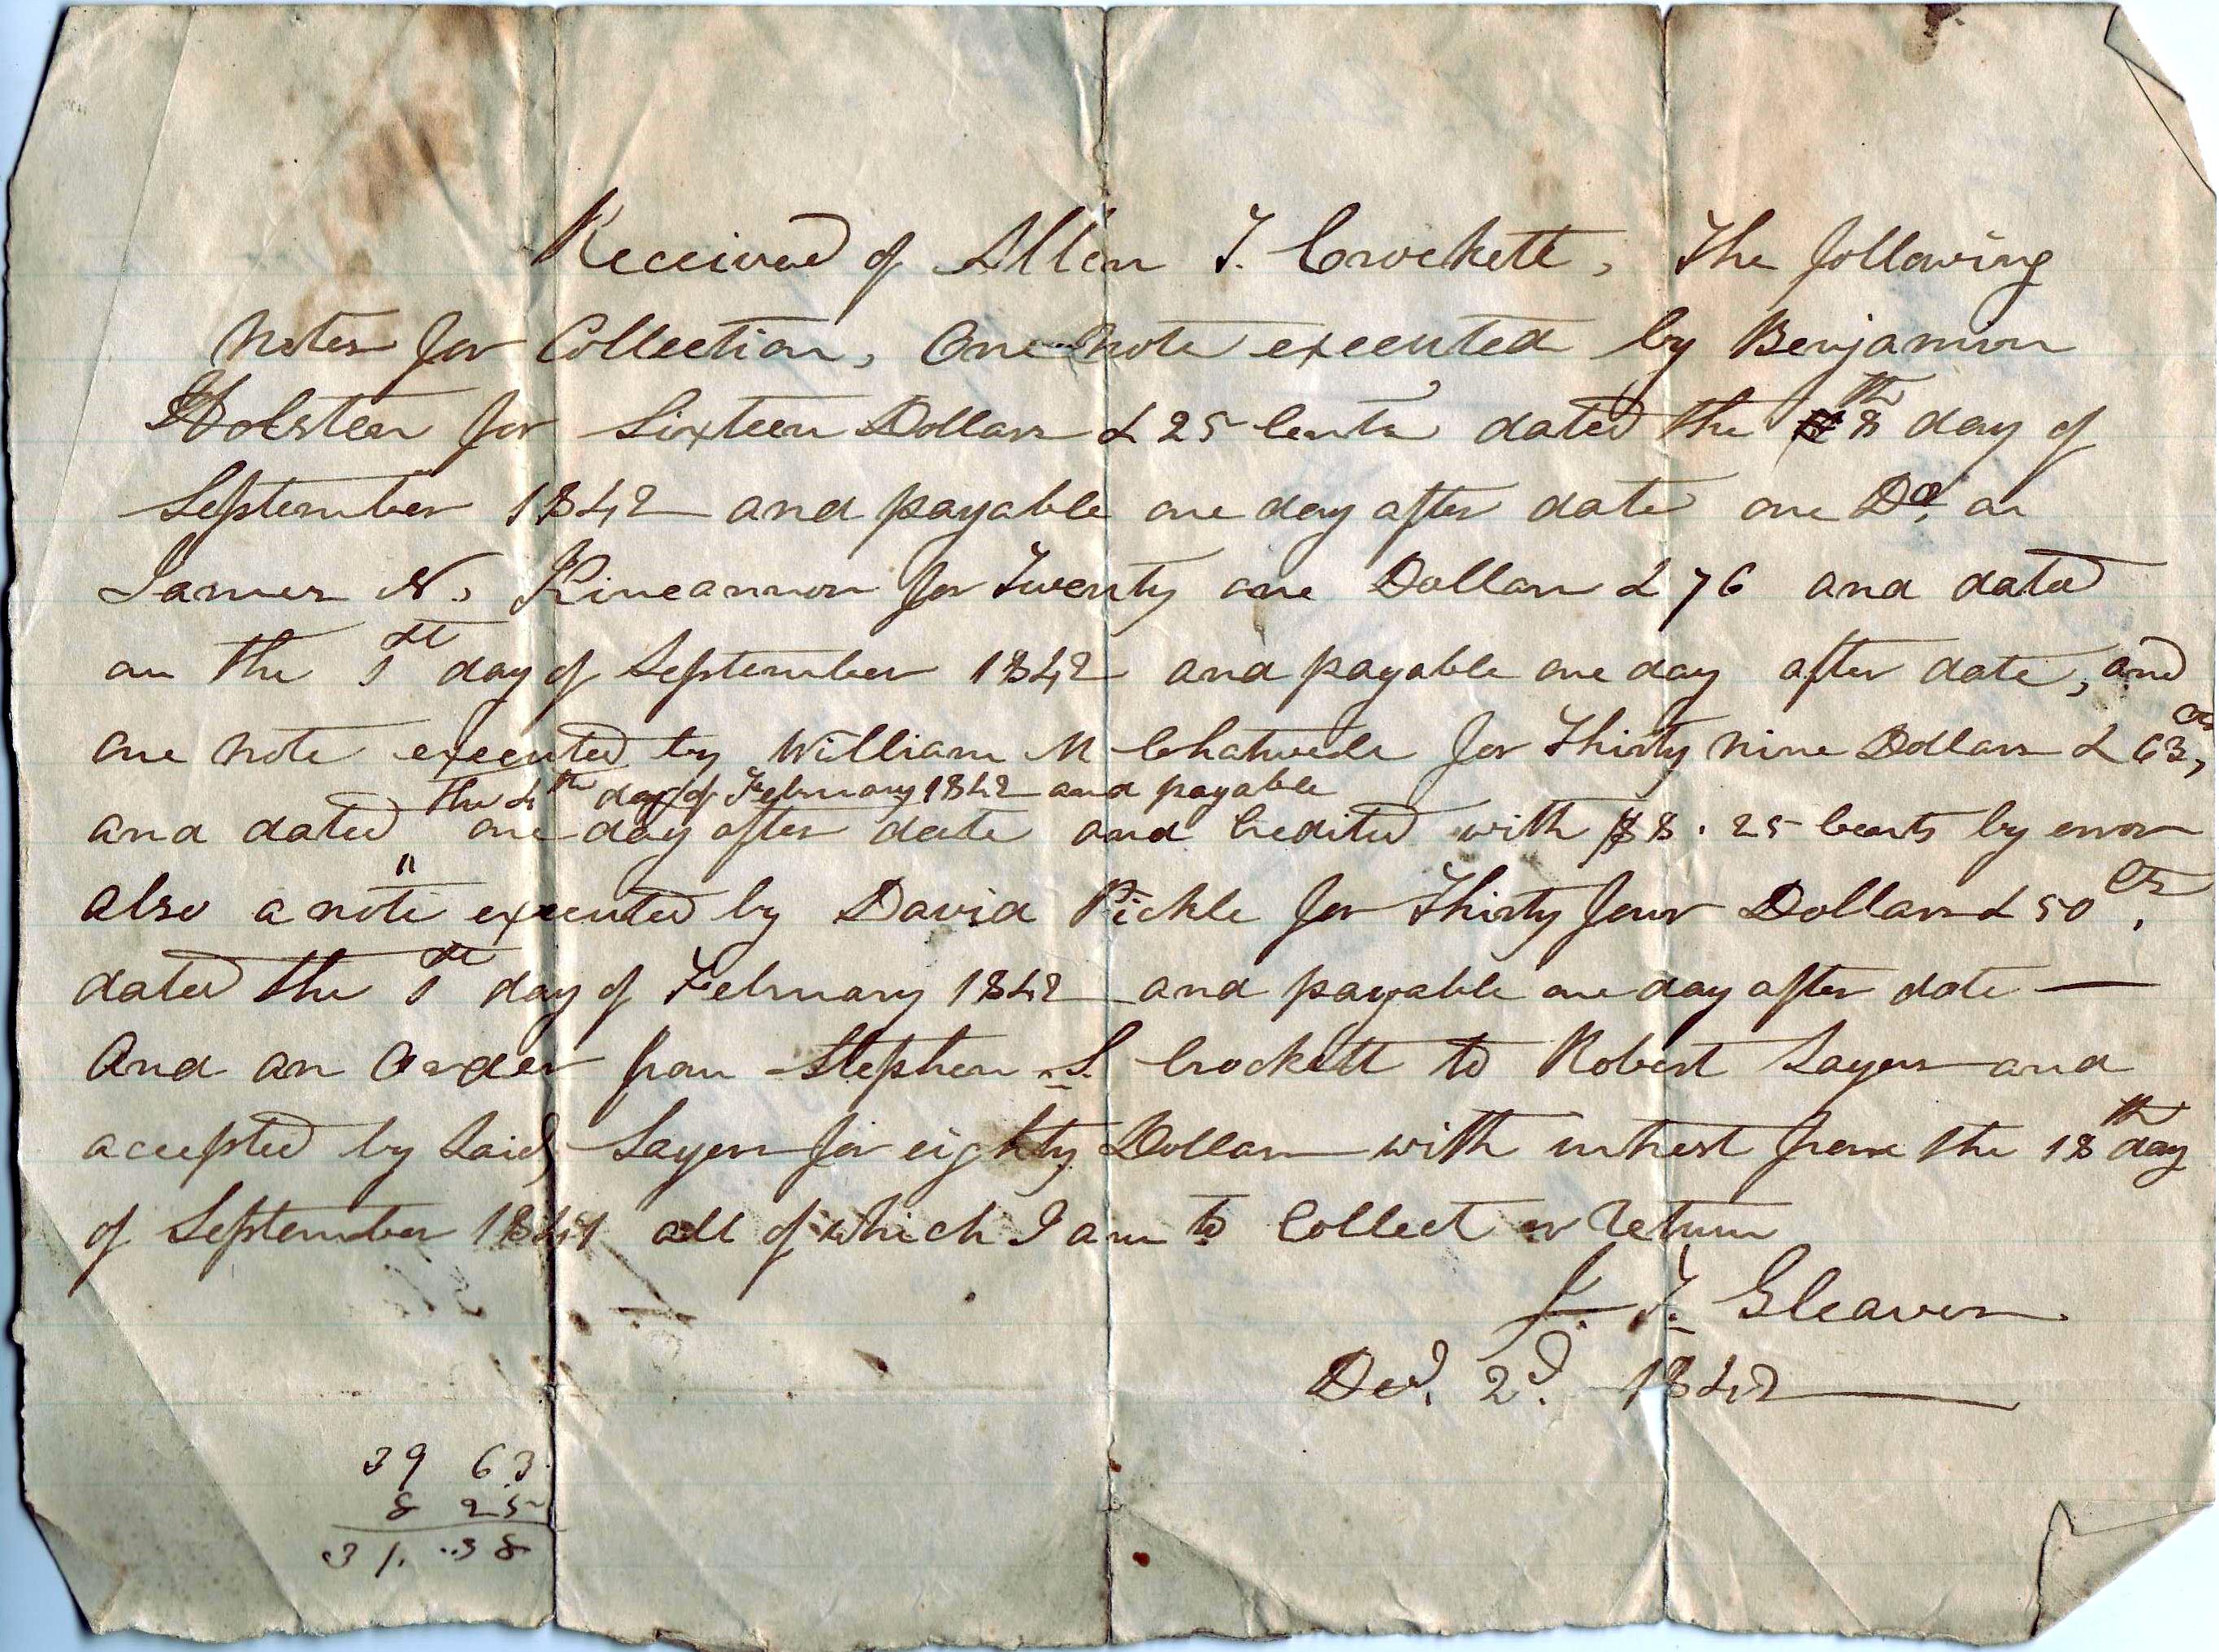 Received of Allen T. Crockett, The following
notes for Collection, One note executed by Benjamin
Holsten for Sixteen Dollars & 25 Cents dated the 8th day of
September 1842 and payable one day after date one Do. on
James N. Kincannon for Twenty one Dollars & 76 and dated
on the 1st day of September 1842 and payable one day after date, and
one note executed by William M for Thirty nine Dollars & 63 cts,
the 4th day of February 1842 and payable
and dated one day after date and Credited with $8.25 Cents by error
also a note executed by David Pickle for Thirty four Dollars & 50 Cts.
dated the 1st day of February 1842 and payable one day after date —
And an Order from Stephen S. Crockett to Robert Sayers and
accepted by Said Sayers for eighty Dollars with intrest from the 18th day
of September 1841 all of which I am to Collect or return
J. T. Gleaves
2d. 1842
39 63
8 25
31. 38